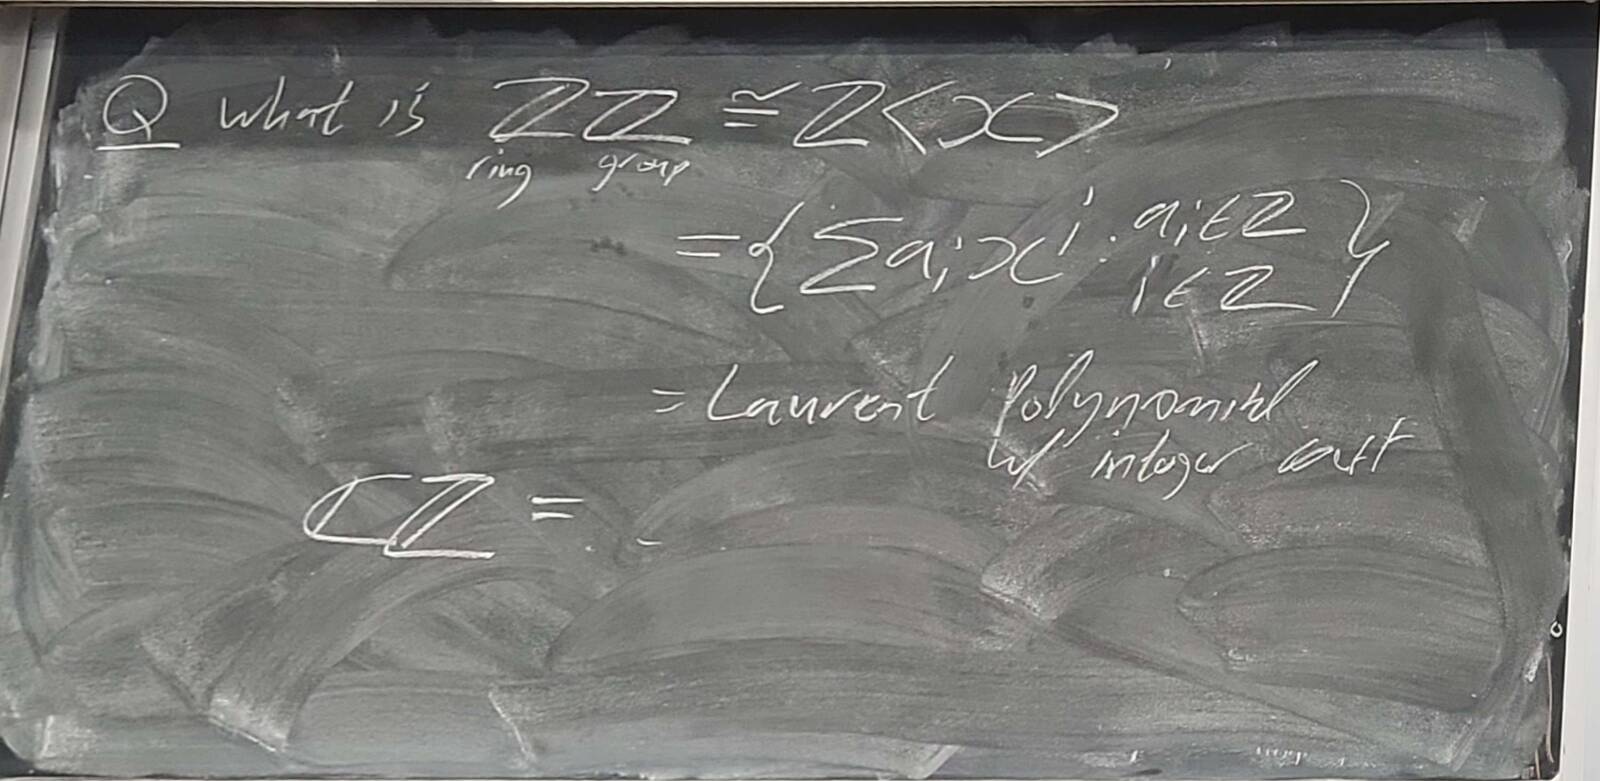 Q What is ℤℤ ≅ ℤ<x>
ring group
= { Σ a_i x^i : a_i ∈ ℤ
i ∈ ℤ }
= Laurent Polynomial
w/ integer coeff
ℂℤ =